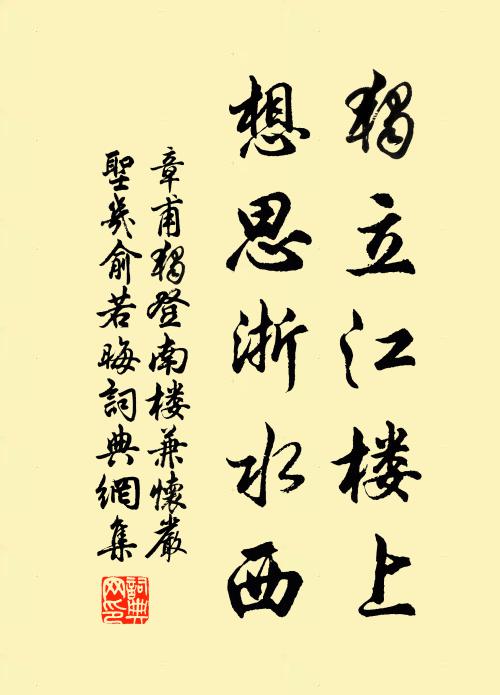 獨立江楼上
想思浙水西
章甫獨登南楼兼懷嚴
聖幾俞若晦詞典網集
詞典网印